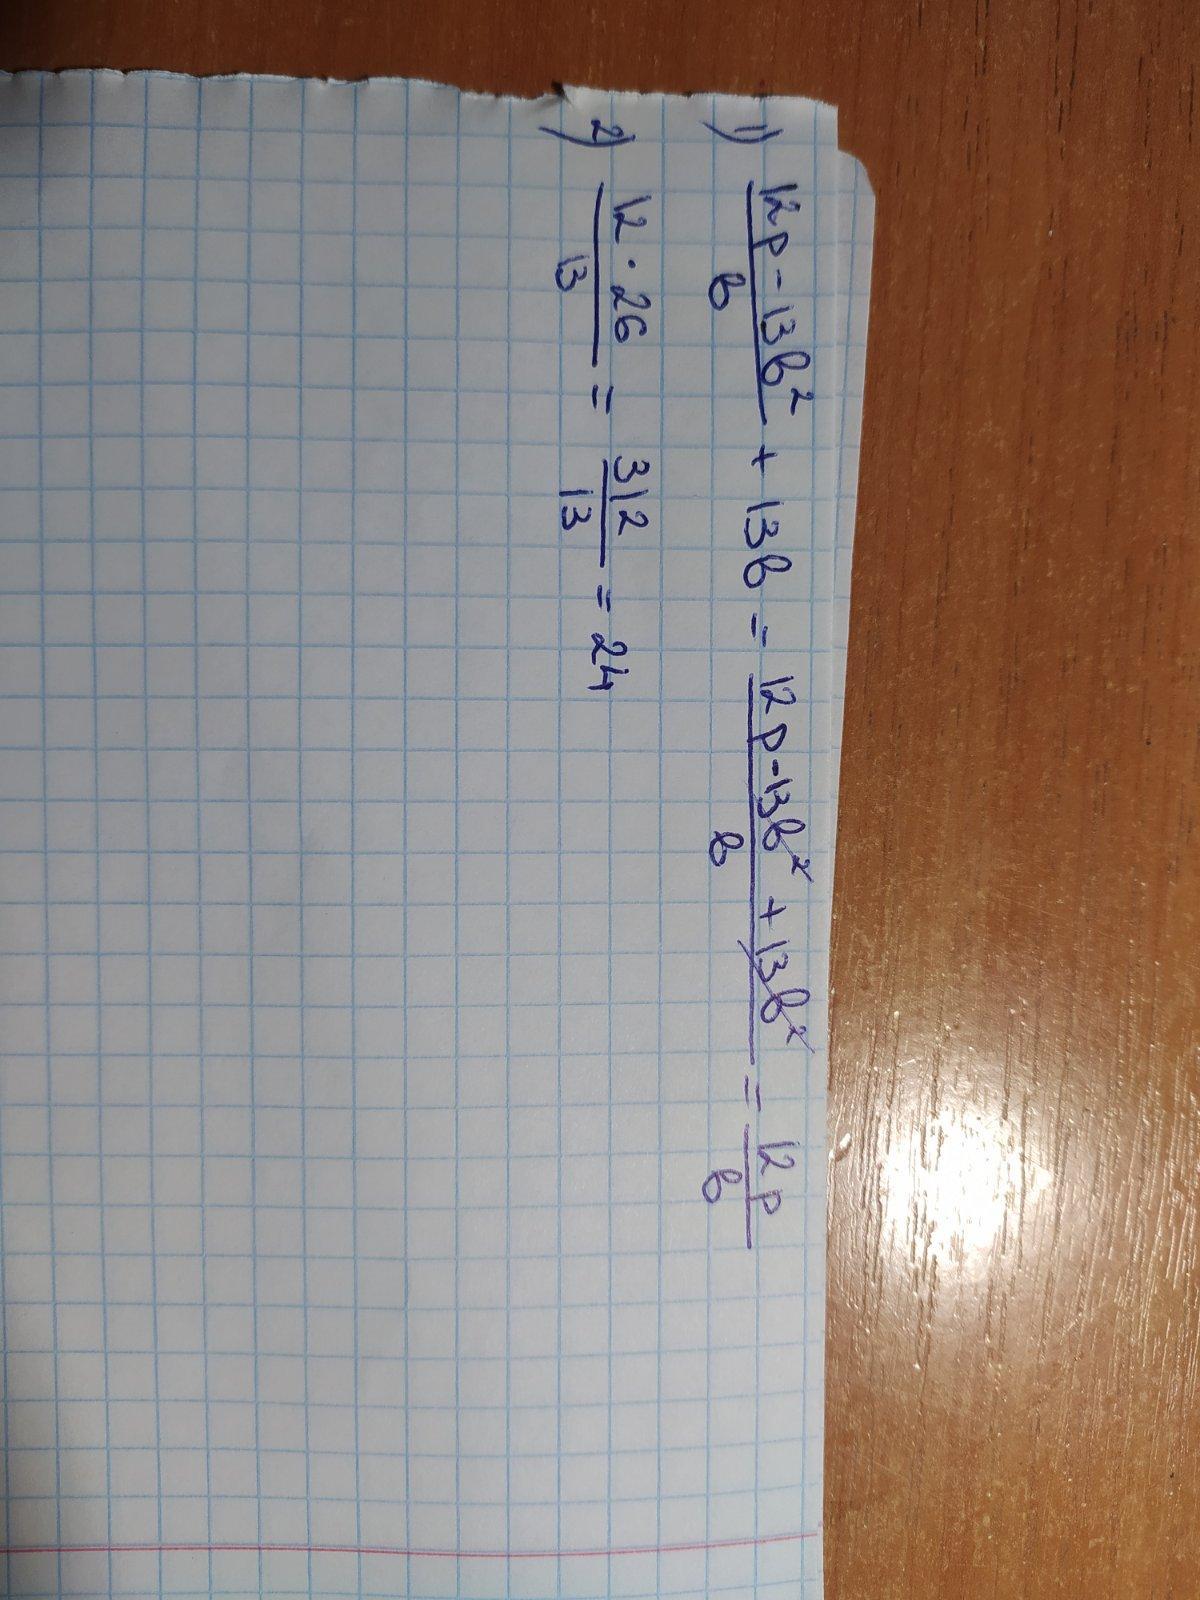 1) \frac{12p-13b^2}{b} + 13b = \frac{12p-13b^2+13b^2}{b} = \frac{12p}{b}
2) \frac{12·26}{13} = \frac{312}{13} = 24